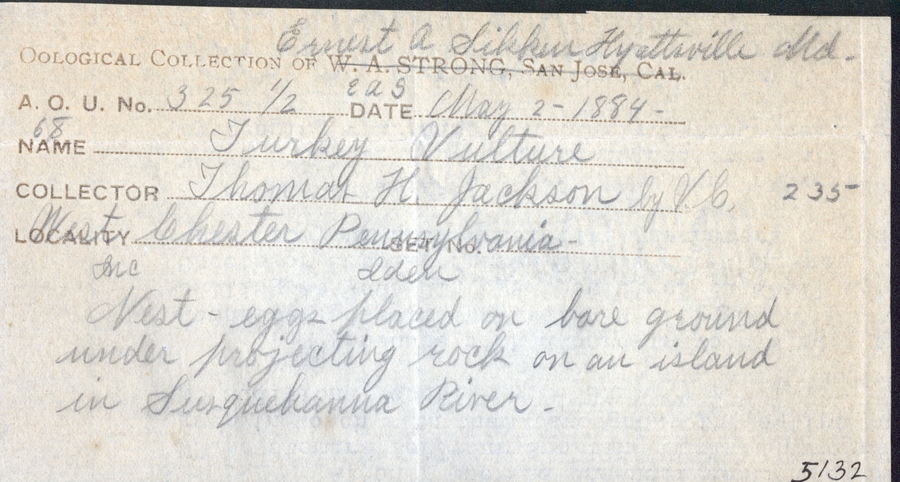 Ernest A Sikken Hyattsville Md.
OOLOGICAL COLLECTION OF W. A. STRONG, SAN JOSE, CAL.
EAS
A. O. U. No. 325 1/2 DATE May 2-1884-
68
NAME Turkey Vulture
COLLECTOR Thomas H. Jackson by V.C. 235
LOCALITY West Chester Pennsylvania- SET No.
Inc Iden
Nest - eggs placed on bare ground
under projecting rock on an island
in Susquehanna River-
5132